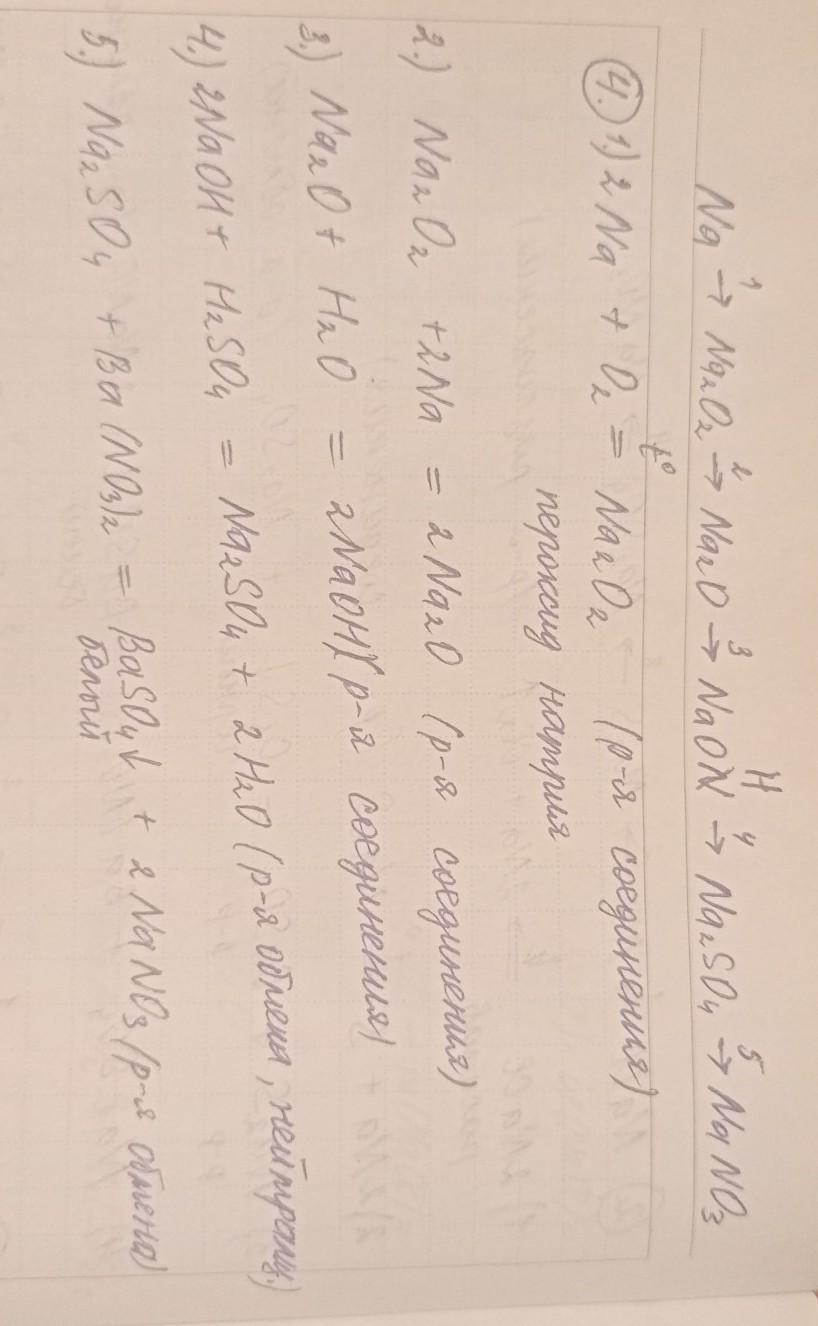 Na →¹ Na₂O₂ →² Na₂O →³ NaOH →⁴ Na₂SO₄ →⁵ NaNO₃
4. 1.) 2Na + O₂ =ᵗ° Na₂O₂ (р-я соединения)
пероксид натрия
2.) Na₂O₂ + 2Na = 2Na₂O (р-я соединения)
3.) Na₂O + H₂O = 2NaOH (р-я соединения)
4.) 2NaOH + H₂SO₄ = Na₂SO₄ + 2H₂O (р-я обмена, нейтрализ.)
5.) Na₂SO₄ + Ba(NO₃)₂ = BaSO₄↓ + 2NaNO₃ (р-я обмена)
белый